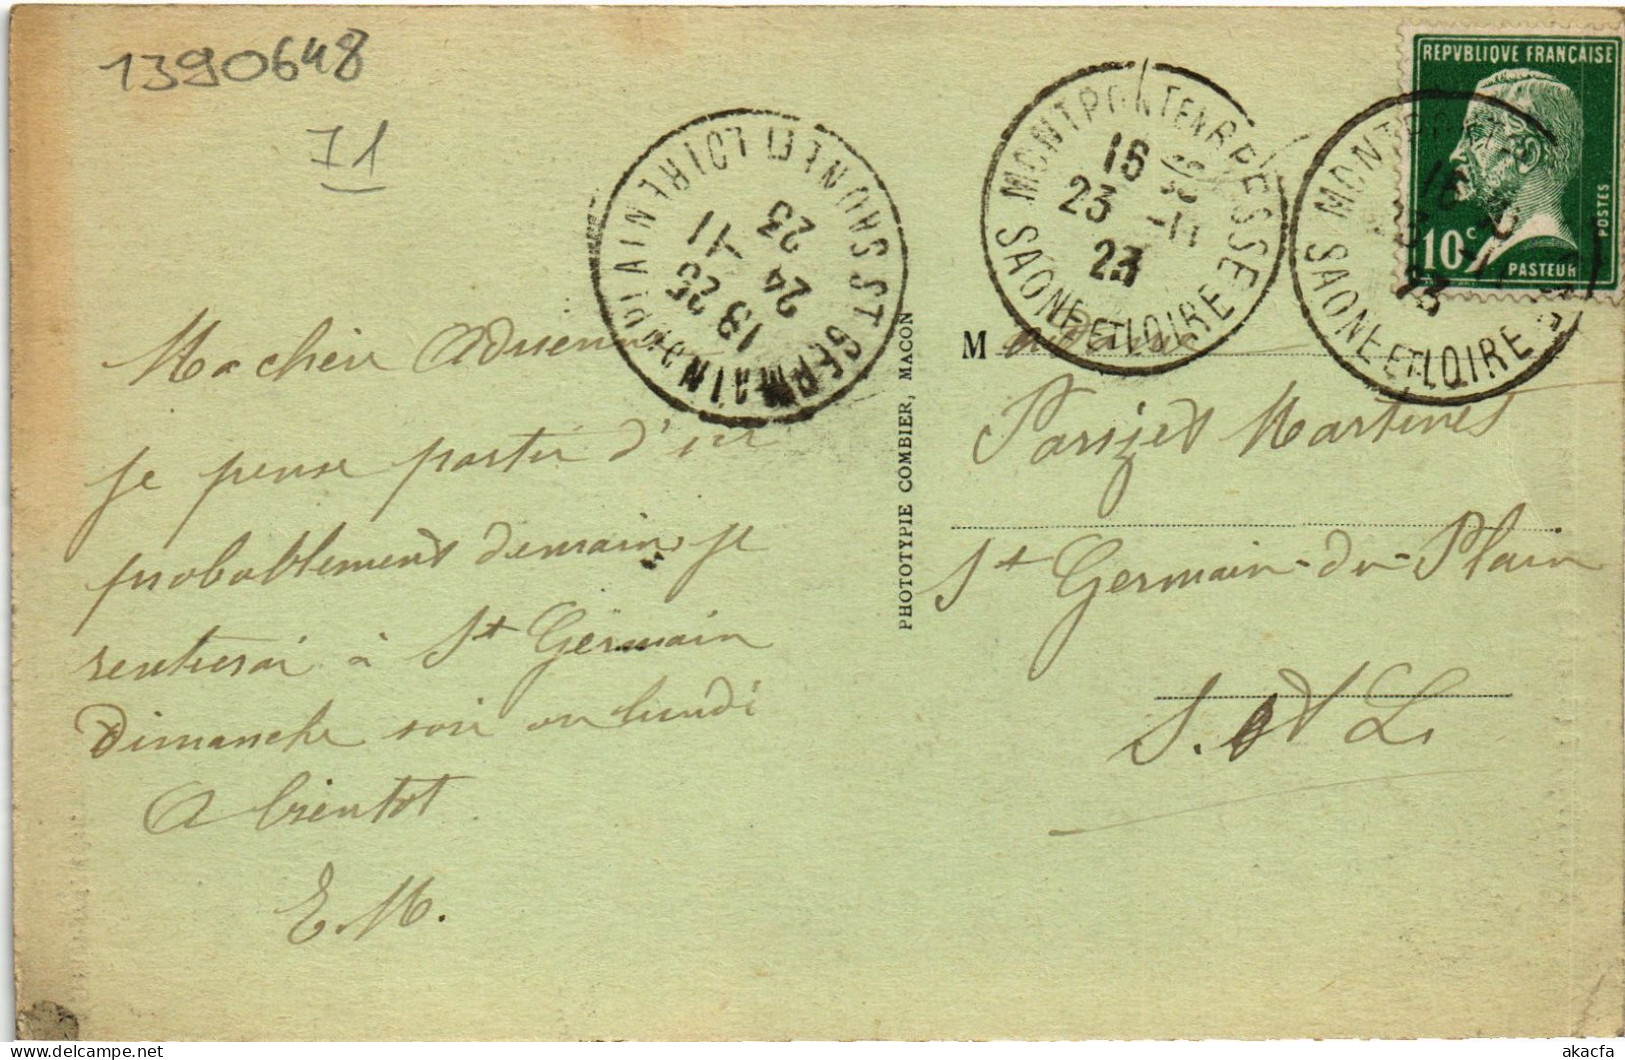 1390648
I1
REPVBLIQUE FRANÇAISE
10c
POSTES
PASTEUR
MONTPONT EN BRESSE
16 30
23 -11
23
SAONE-ET-LOIRE
MONTPONT
16 30
23
SAONE-ET-LOIRE
ST GERMAIN DU PLAIN
13 25
24 -11
23
SAONE-ET-LOIRE
Ma chère Adrienne
je pense partir d'ici
probablement demain je
rentrerai à St Germain
Dimanche soir ou lundi
A bientot
E. M.
PHOTOTYPIE COMBIER, MACON
M
Parizet Martinet
St Germain-du-Plain
S. et L.
akacfa